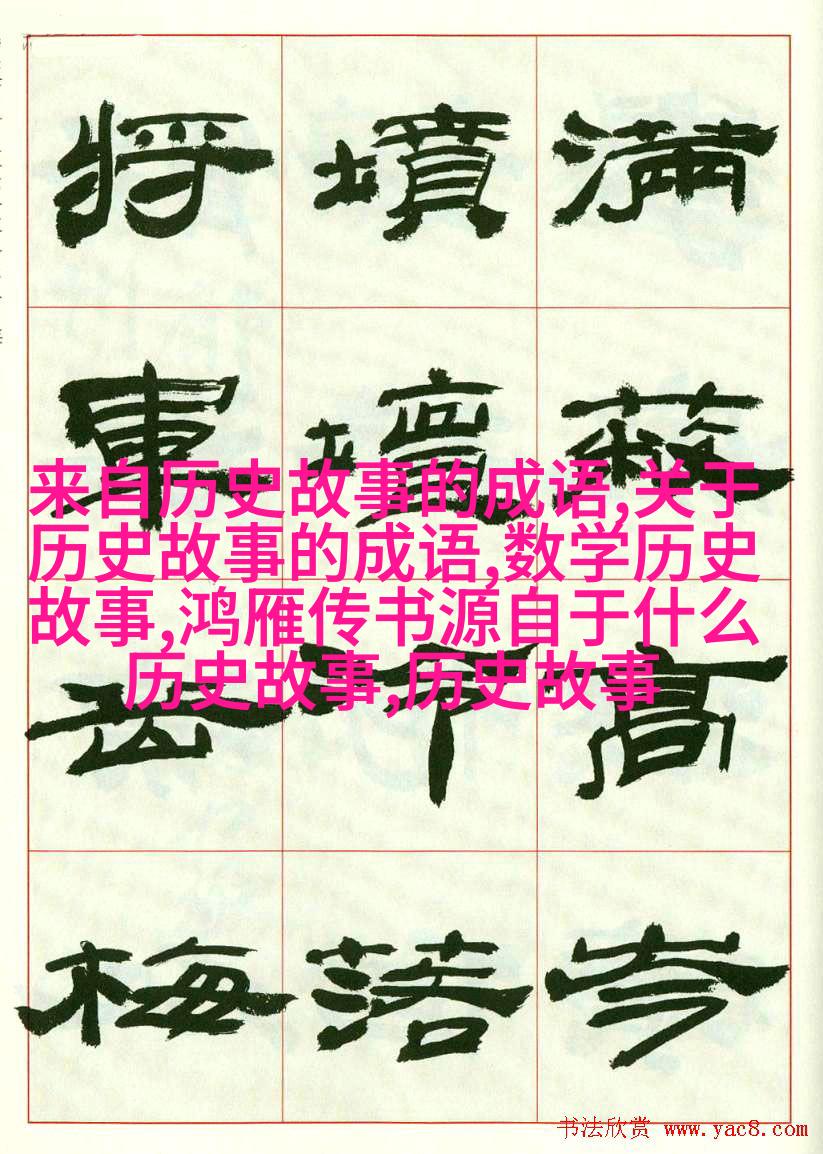 滿高岑
墳壇落
将軍梅
来自历史故事的成语,关于
历史故事的成语,数学历史
故事,鸿雁传书源自于什么
历史故事,历史故事
书法欣赏 www.yac8.com